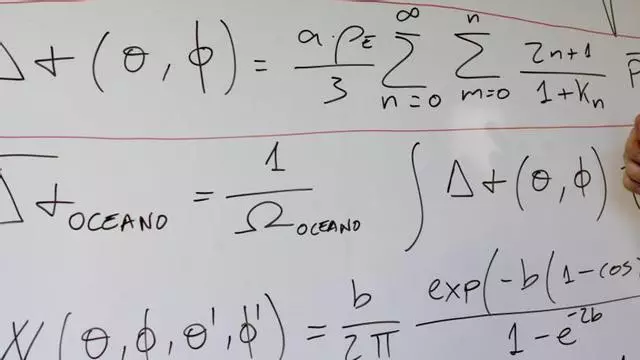 Δt(θ,ϕ) = a·ρ_E/3 ∑_{n=0}^{∞} ∑_{m=0}^{n} 2n+1/1+K_n P
Δt_OCEANO = 1/Ω_OCEANO ∫ Δt(θ,ϕ)
W(θ,ϕ,θ',ϕ') = b/2π exp(-b(1-cos)/1-e^{-2b}